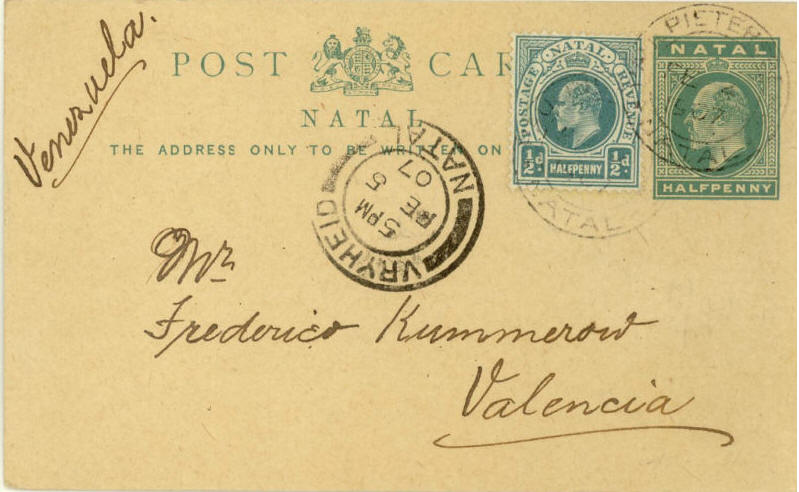 Venezuela.
POST CAR
NATAL
THE ADDRESS ONLY TO BE WRITTEN ON
POSTAGE NATAL REVENUE
½d HALFPENNY ½d
NATAL
HALFPENNY
PIETER
NATAL
NATAL
VRYHEID NATAL
5 PM
5
07
Mr
Frederico Kummerow
Valencia